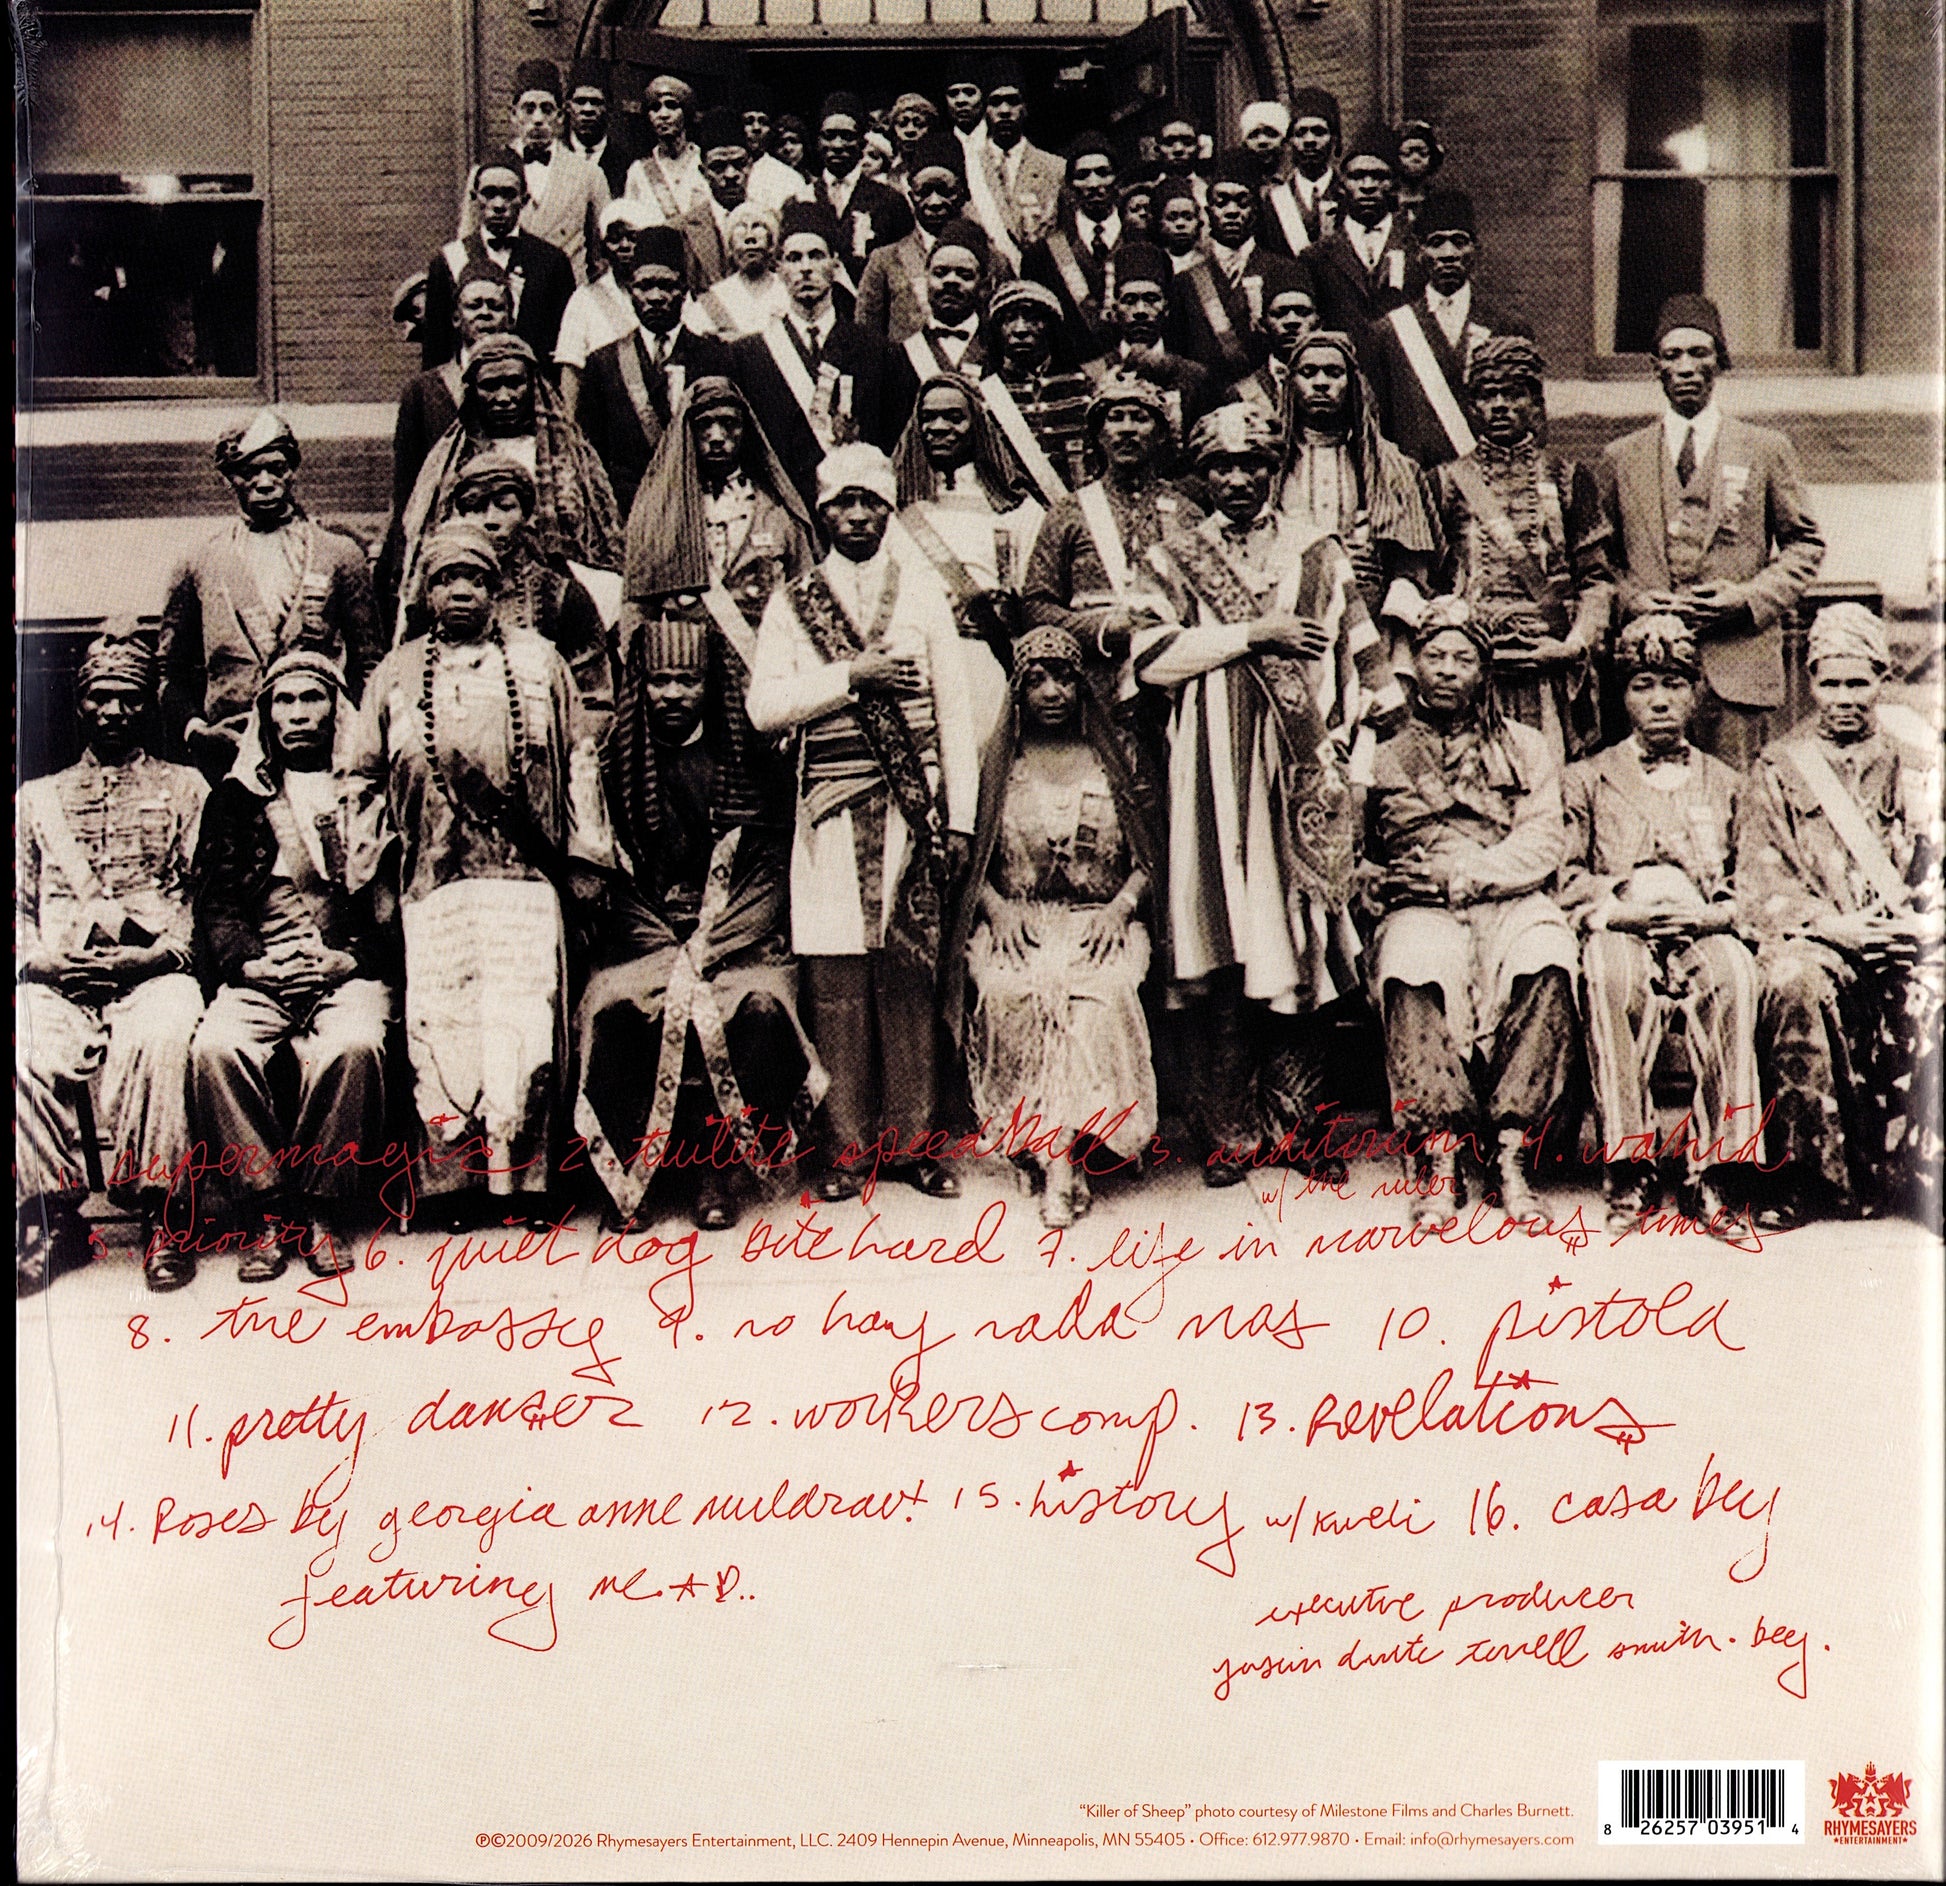 1. supermagic 2. twilite speedball 3. auditorium 4. wahid
w/ the ruler
5. priority 6. quiet dog bite hard 7. life in marvelous times
8. the embassy 9. no hay nada mas 10. pistola
11. pretty dancer 12. workers comp. 13. Revelations
14. Roses by georgia anne muldrow! 15. history w/ Kweli 16. casa bey
featuring me.
executive producer
dante terrell smith. bey.
"Killer of Sheep" photo courtesy of Milestone Films and Charles Burnett.
℗©2009/2026 Rhymesayers Entertainment, LLC. 2409 Hennepin Avenue, Minneapolis, MN 55405 • Office: 612.977.9870 • Email: info@rhymesayers.com
8 26257 03951 4
RHYMESAYERS
★ENTERTAINMENT★